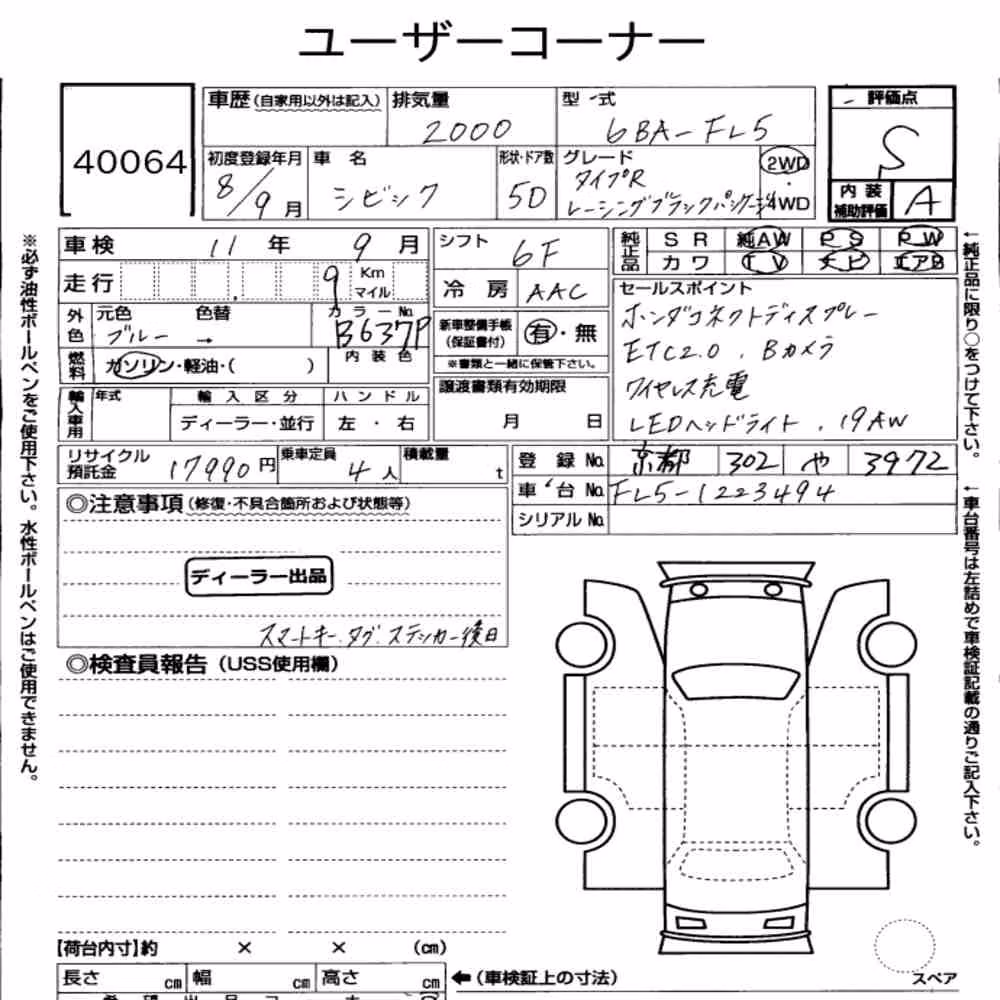 ユーザーコーナー
40064
車歴(自家用以外は記入) 排気量 2000 型式 6BA-FL5
初度登録年月 8/9月 車名 シビック 形状・ドア数 5D グレード タイプR レーシングブラックパッケージ 2WD・4WD
評価点 S
内装補助評価 A
車検 11年 9月
走行 9 Km マイル
外色 元色 ブルー → 色替 カラーNo. B637P
燃料 ガソリン・軽油・( ) 内装色
輸入車用 年式 輸入区分 ディーラー・並行 ハンドル 左・右
シフト 6F
冷房 AAC
新車整備手帳(保証書付) 有・無
※書類と一緒に保管下さい。
譲渡書類有効期限
月 日
純正品 SR 純AW PS PW
カワ TV ナビ エアB
セールスポイント
ホンダコネクトディスプレー
ETC2.0 . Bカメラ
ワイヤレス充電
LEDヘッドライト . 19AW
リサイクル預託金 17990円 乗車定員 4人 積載量 t
登録No. 京都 302 や 3972
車台No. FL5-1223494
シリアルNo.
◎注意事項(修復・不具合箇所および状態等)
ディーラー出品
スマートキー.タグ.ステッカー後日
◎検査員報告(USS使用欄)
【荷台内寸】約 × × (cm)
長さ cm 幅 cm 高さ cm ←(車検証上の寸法)
スペア
※必ず油性ボールペンをご使用下さい。水性ボールペンはご使用できません。
←純正品に限り○をつけて下さい。
←車台番号は左詰めで車検証記載の通りご記入下さい。